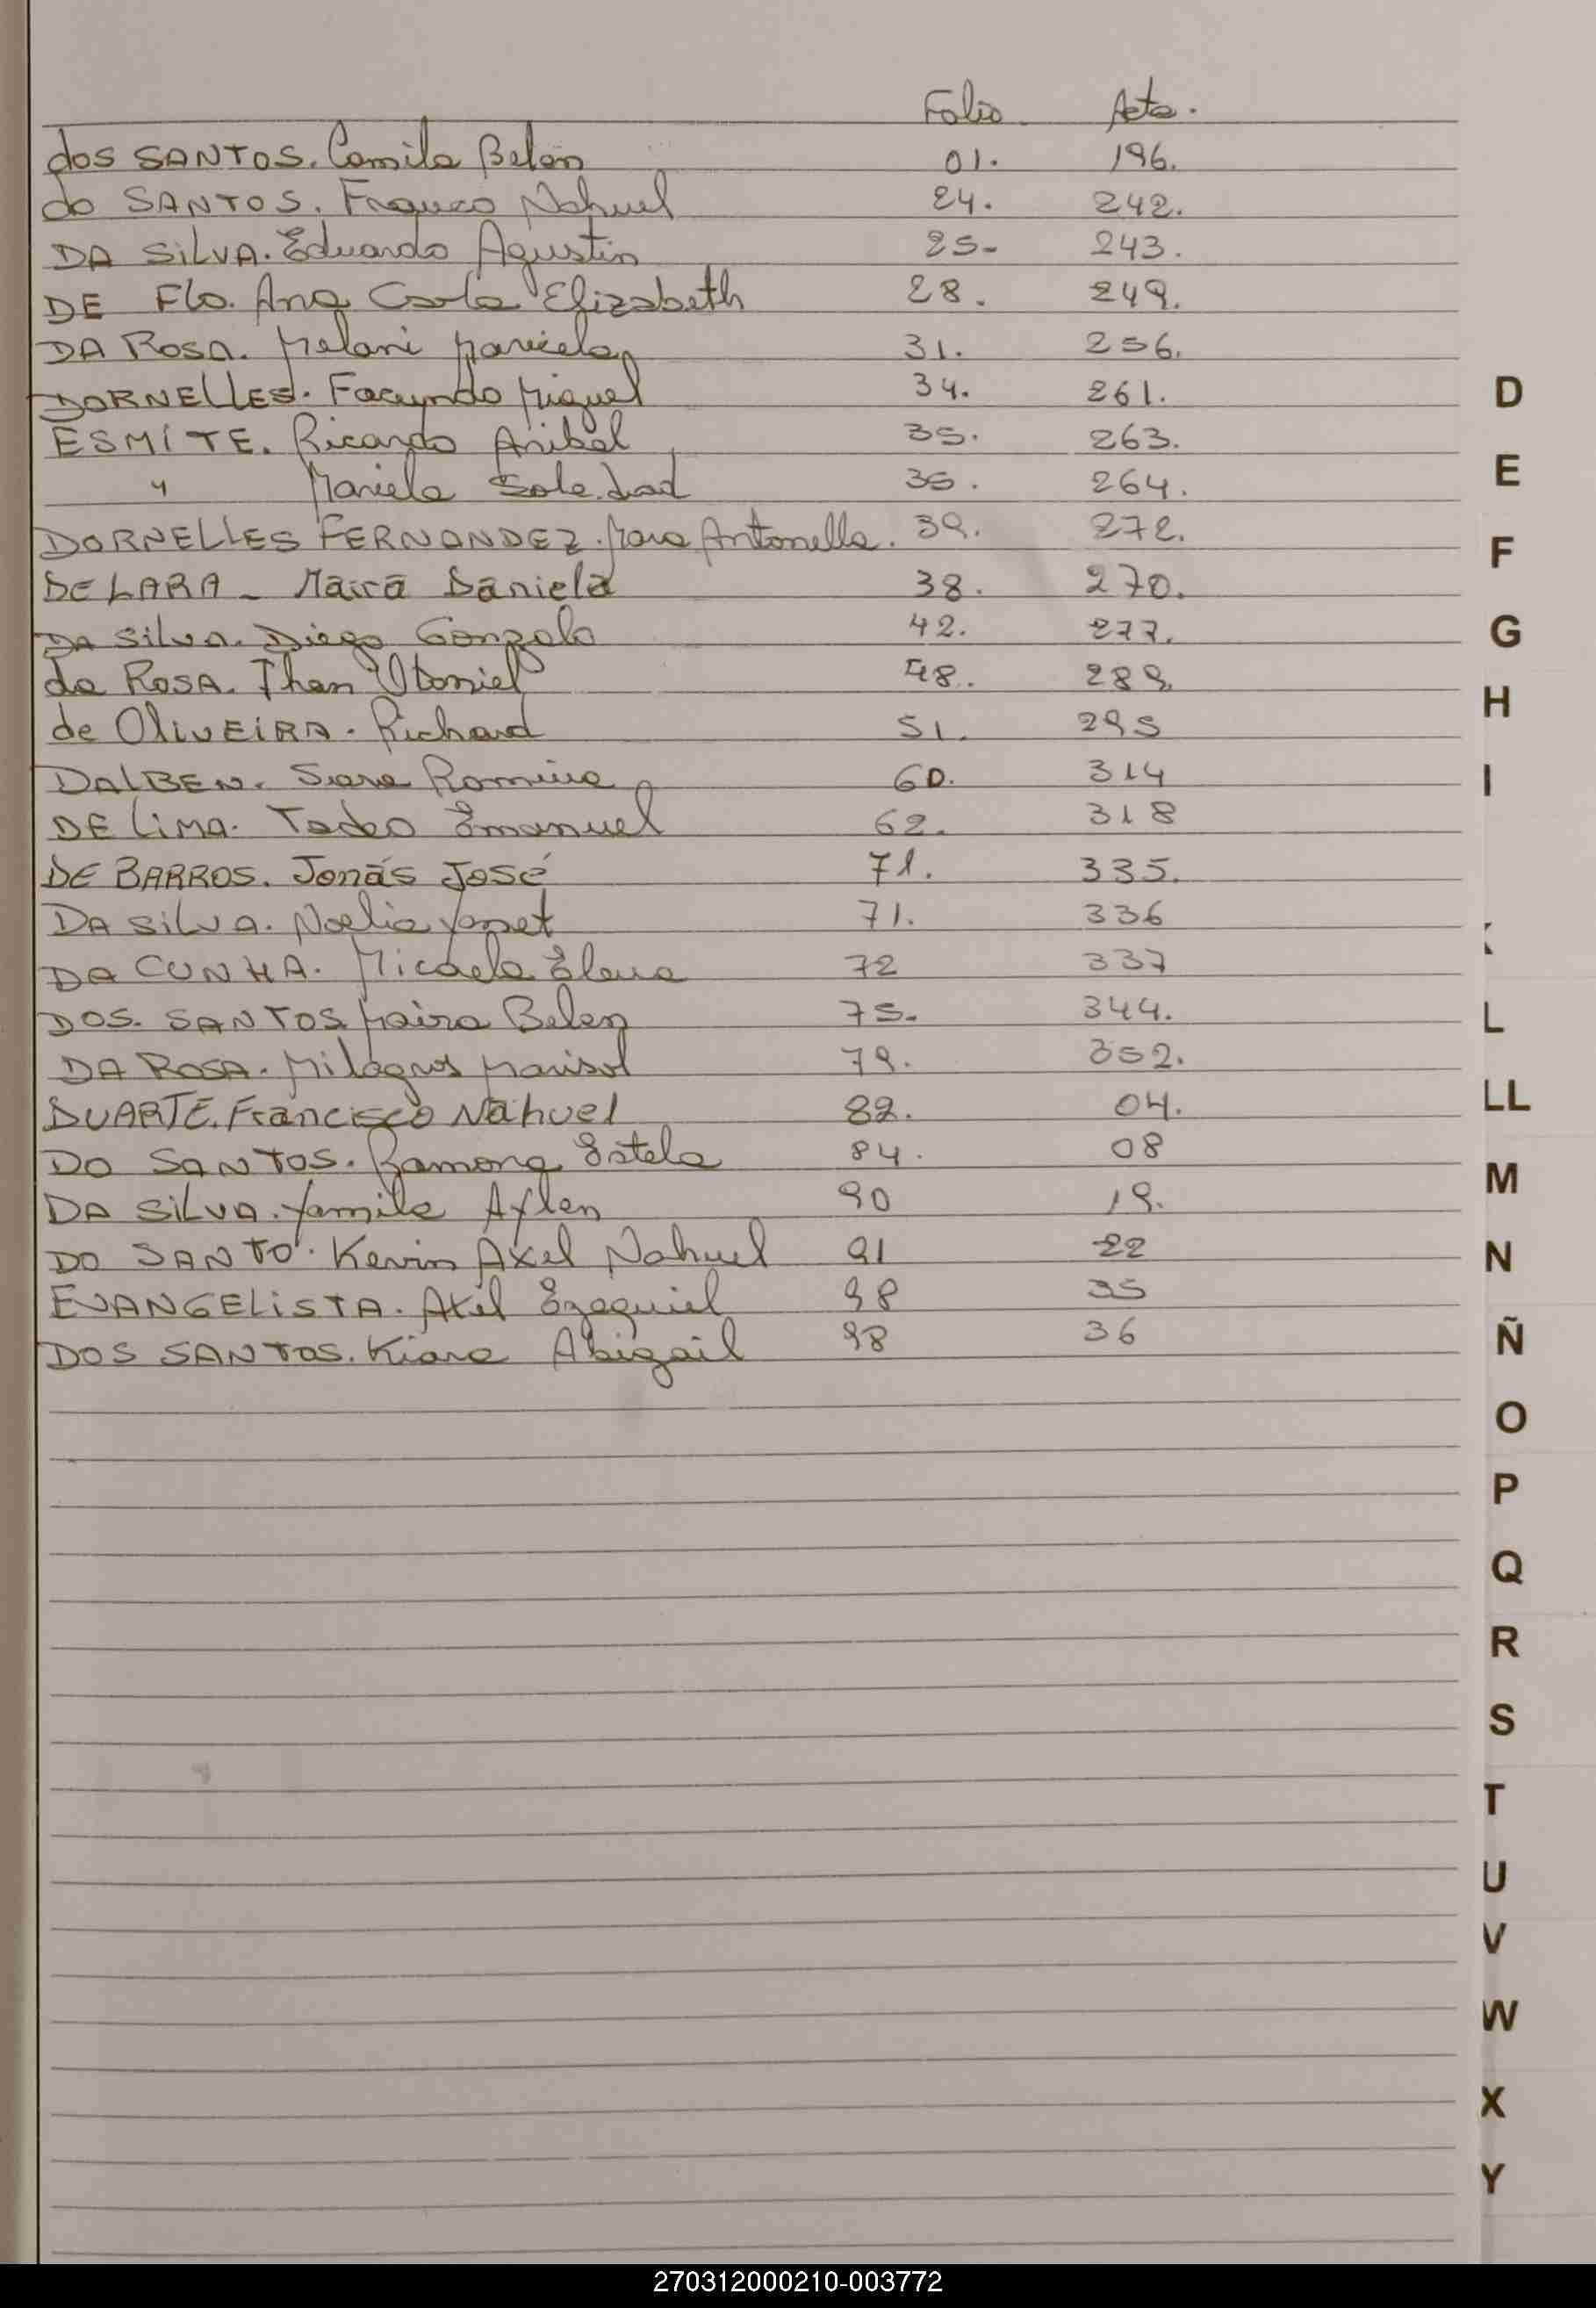 Folio Acta.
dos SANTOS. Camila Belén 01. 196.
do SANTOS. Franco Nahuel 24. 242.
DA SiLVA. Eduardo Agustin 25- 243.
DE Flo. Ana Carla Elizabeth 28. 249.
DA ROSA. Melani Mariela 31. 256.
DORNELLES. Facundo Miguel 34. 261.
ESMITE. Ricardo Anibal 35. 263.
" Mariela Soledad 35. 264.
DORNELLES FERNANDEZ. Mara Antonella. 39. 272.
DE LARA - Maira Daniela 38. 270.
DA Silva. Diego Gonzalo 42. 277.
da ROSA. Jhan Otoniel 48. 289.
de OliVEiRA. Richard 51. 295
DALBEN. Sara Romina 60. 314
DE LiMA. Tadeo Emanuel 62. 318
DE BARROS. Jonás José 71. 335.
DA SilVA. Noelia Yanet 71. 336
DA CUNHA. Micaela Elena 72 337
DOS. SANTOS Maira Belen 75. 344.
DA ROSA. Milagros Marisol 79. 352.
DUARTE. Francisco Nahuel 82. 04.
DO SANTOS. Ramona Estela 84. 08
DA SiLVA. Yamila Aylen 90 19.
DO SANTO. Kevin Axel Nahuel 91 22
EVANGELiSTA. Axel Ezequiel 98 35
DOS SANTOS. Kiara Abigail 98 36
D
E
F
G
H
I
L
LL
M
N
Ñ
O
P
Q
R
S
T
U
V
W
X
Y
270312000210-003772